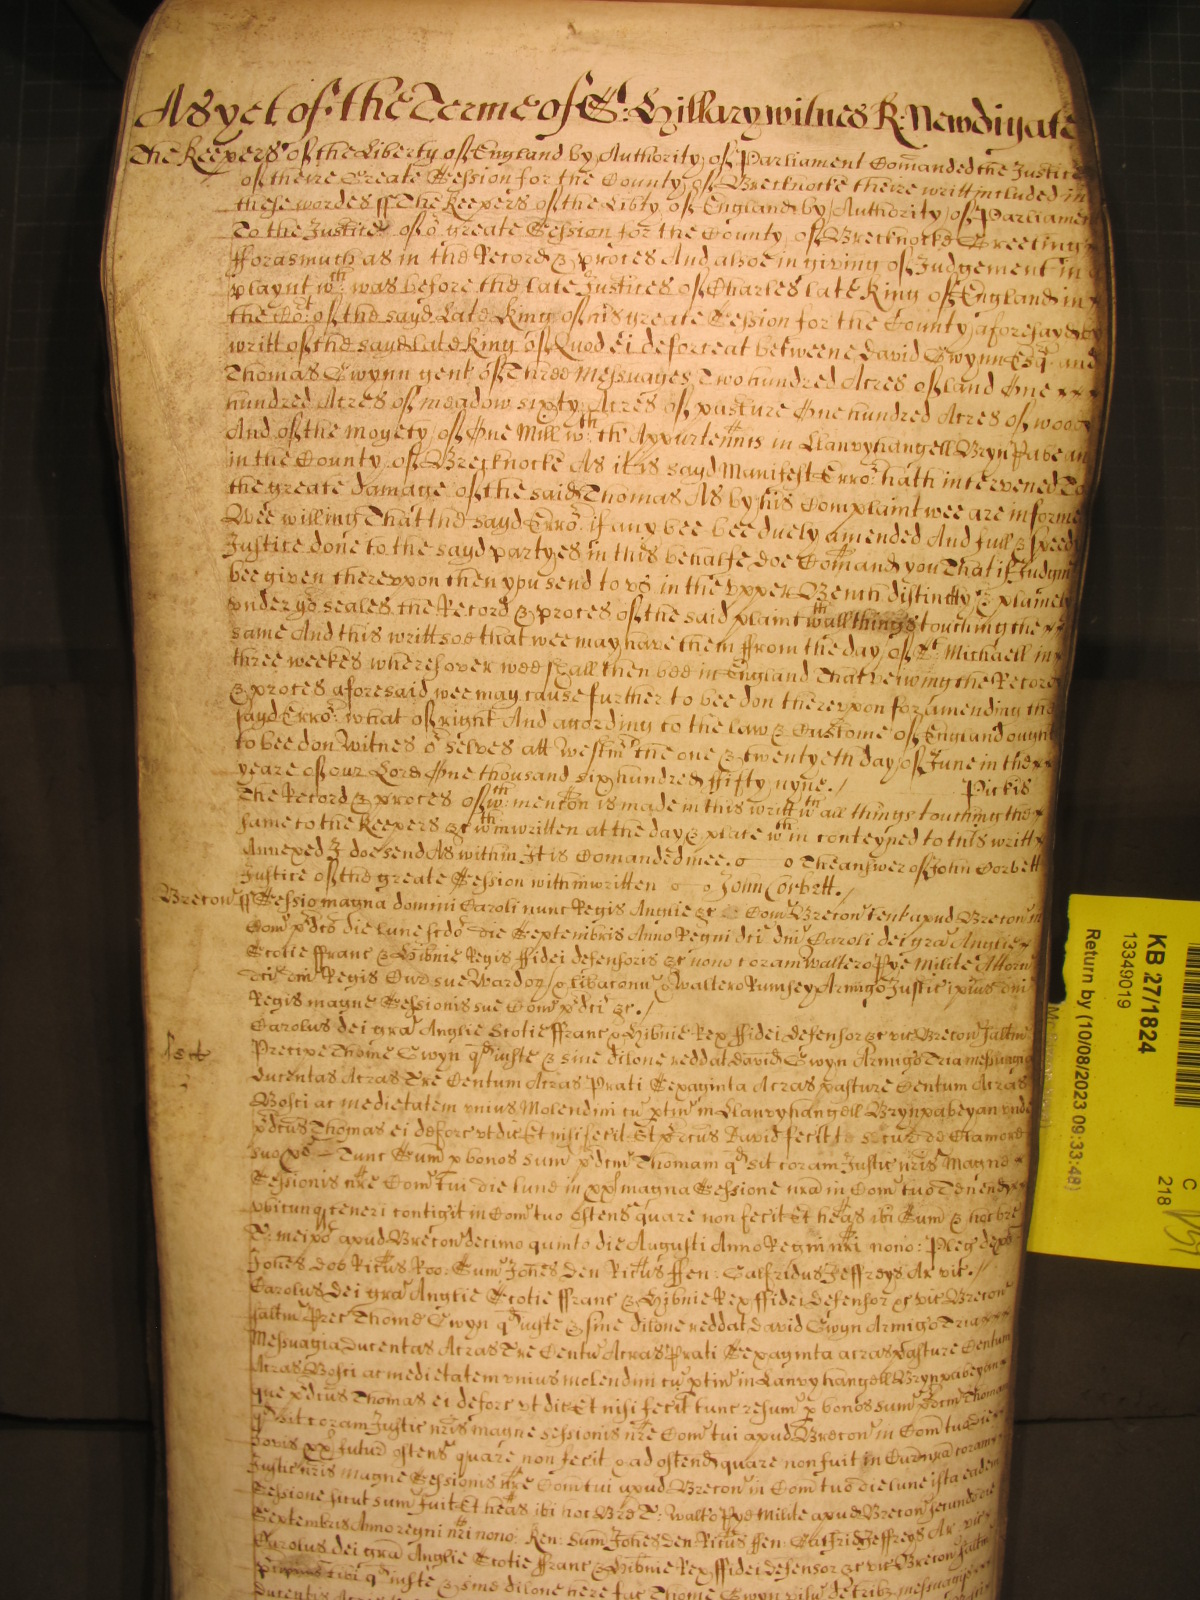 As yet of the Terme of St: Hillary witnes R: Newdigate
The Keepers of the Liberty of England by Authority of Parliament Comanded the Justices
of theire Create Session for the County of Brecknocke theire writt included in
these wordes ss The Keepers of the Libty of England by Authority of Parliament
To the Justices of or greate Session for the County of Brecknocke Greeting
fforasmuch as in the Record & proces And alsoe in giving of Judgement in a
playnt wch was before the late Justices of Charles late King of England in
the Cort of the sayd Late King of his greate Session for the County aforesayd by
writt of the sayd late King of Quod ei deforceat betweene David Gwynn Esqr and
Thomas Gwynn gent of Three Messuages Two hundred Acres of land One
hundred Acres of meadow sixty Acres of pasture One hundred Acres of wood
And of the moyety of One Mill wth th Appurtennts in Llanvyhangell Bryn Pabean
in the County of Brecknocke As it is sayd Manifest Error hath intervened To
the greate damage of the said Thomas As by his Complaint wee are informed
Wee willing That the sayd Error if any bee bee duely amended And full & speedy
Justice done to the sayd partyes in this behalfe doe Comand you That if Judgmt
bee given thereupon then you send to us in the upper Bench distinctly & plainely
under yor seales the Record & proces of the said plaint wth all things touching the
same And this writt soe that wee may have them ffrom the day of St Michaell in
three weekes wheresoever wee shall then bee in England That veiwing the Record
& proces aforesaid wee may cause further to bee don thereupon for amending the
sayd Error what of right And according to the law & Custome of England ought
to bee don Witnes or selves att Westmr the one & twentyeth day of June in the
yeare of our Lord One thousand six hundred ffifty nyne. / Pickis
The Record & proces of wch mencon is made in this writt wth all things touching the
same to the Keepers &c wthin written at the day & place wthin conteyned to this writt
Annexed I doe send As within It is Comanded mee. o o The answer of John Corbett
Justice of the greate Session within written o o John Corbett. /
Brecon ss Sessio magna domini Caroli nunc Regis Anglie &c Com Brecon tent apud Brecon in
Com pdco die lune scdo die Septembris Anno Regni dci dni Caroli dei gra Anglie
Scotie ffranc & Hibnie Regis ffidei defensoris &c nono coram Waltero Pye Milite Attorn
dci dni Regis Cur sue Wardor & libaconu & Waltero Rumsey Armigo Justic ipius dni
Regis magne Sessionis sue Com pdci &c. /
Carolus dei gra Anglie Scotie ffranc & Hibnie Rex ffidei defensor &c vic Brecon saltm
Precipe Thome Gwyn qd iuste & sine dilone reddat David Gwyn Armigo Tria messuagia
ducentas Acras Tre Centum Acras Prati Sexaginta Acras pasture Centum Acras
Bosci ac medietatem unius Molendini cu ptin in Llanvyhangell Brynpabeyan unde
pdcus Thomas ei deforc ut dic Et nisi fecit Et pdcus David fecit te secur de Clamore
suo pse Tunc Sum p bonos sum pdcm Thomam qd sit coram Justic nris Magne
Sessionis nre Com tui die lune in px magna Sessione nra in Com tuo Tenend
ubicunq teneri contigit in Com tuo ostens quare non fecit Et heas ibi Sum & hoc bre
T: meipo apud Brecon decimo quinto die Augusti Anno Regni nri nono: Pleg de ps
Johes Doo Ricus Roo: Sum Johes Den Ricus ffen: Galfridus Jeffreys Ar vic. /
Carolus Dei gra Anglie Scotie ffranc & Hibnie Rex ffidei Defensor &c vic Brecon
saltm Prec Thome Gwyn qd iuste & sine dilone reddat David Gwyn Armigo Tria
Messuagia Ducentas Acras Tre Centu Acras Prati Sexaginta acras pasture Centum
Acras Bosci ac medietatem unius molendini cu ptin in Llanvyhangell Brynpabeyan
que pdcus Thomas ei deforc ut dic Et nisi fecit tunc resum p bonos sum pdcm Thomam
qd sit coram Justic nris magne sessionis nre Com tui apud Brecon in Com tuo die
Jovis px futur ostens quare non fecit & ad ostend quare non fuit in Cur nra coram
Justic nris magne Sessionis nre Com tui apud Brecon in Com tuo die lune ista eadem
Sessione sicut sum fuit Et heas ibi hoc Bre T: Walto Pye Milite apud Brecon secundo die
Septembris Anno regni nri nono: Ren: Sum Johes Den Ricus ffen: Galfrid Jeffreys Ar vic
Carolus dei gra Anglie Scotie ffranc & Hibnie Rex ffidei defensor &c vic Brecon saltm
tibi qd iuste & sine dilone here fac Thome Gwyn visu de tribz messuagiis
ducentis Acris
KB 27/1824
13349019
Return by (10/08/2023 09:33:48)
C
218